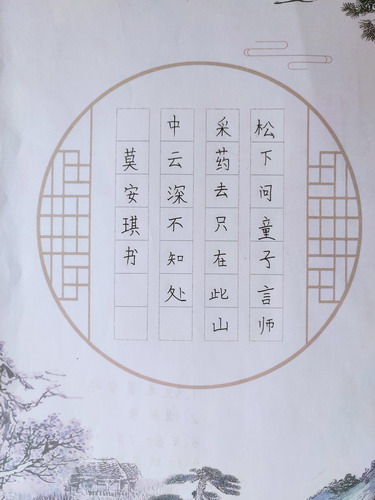 松下问童子言师
采药去只在此山
中云深不知处
莫安琪书